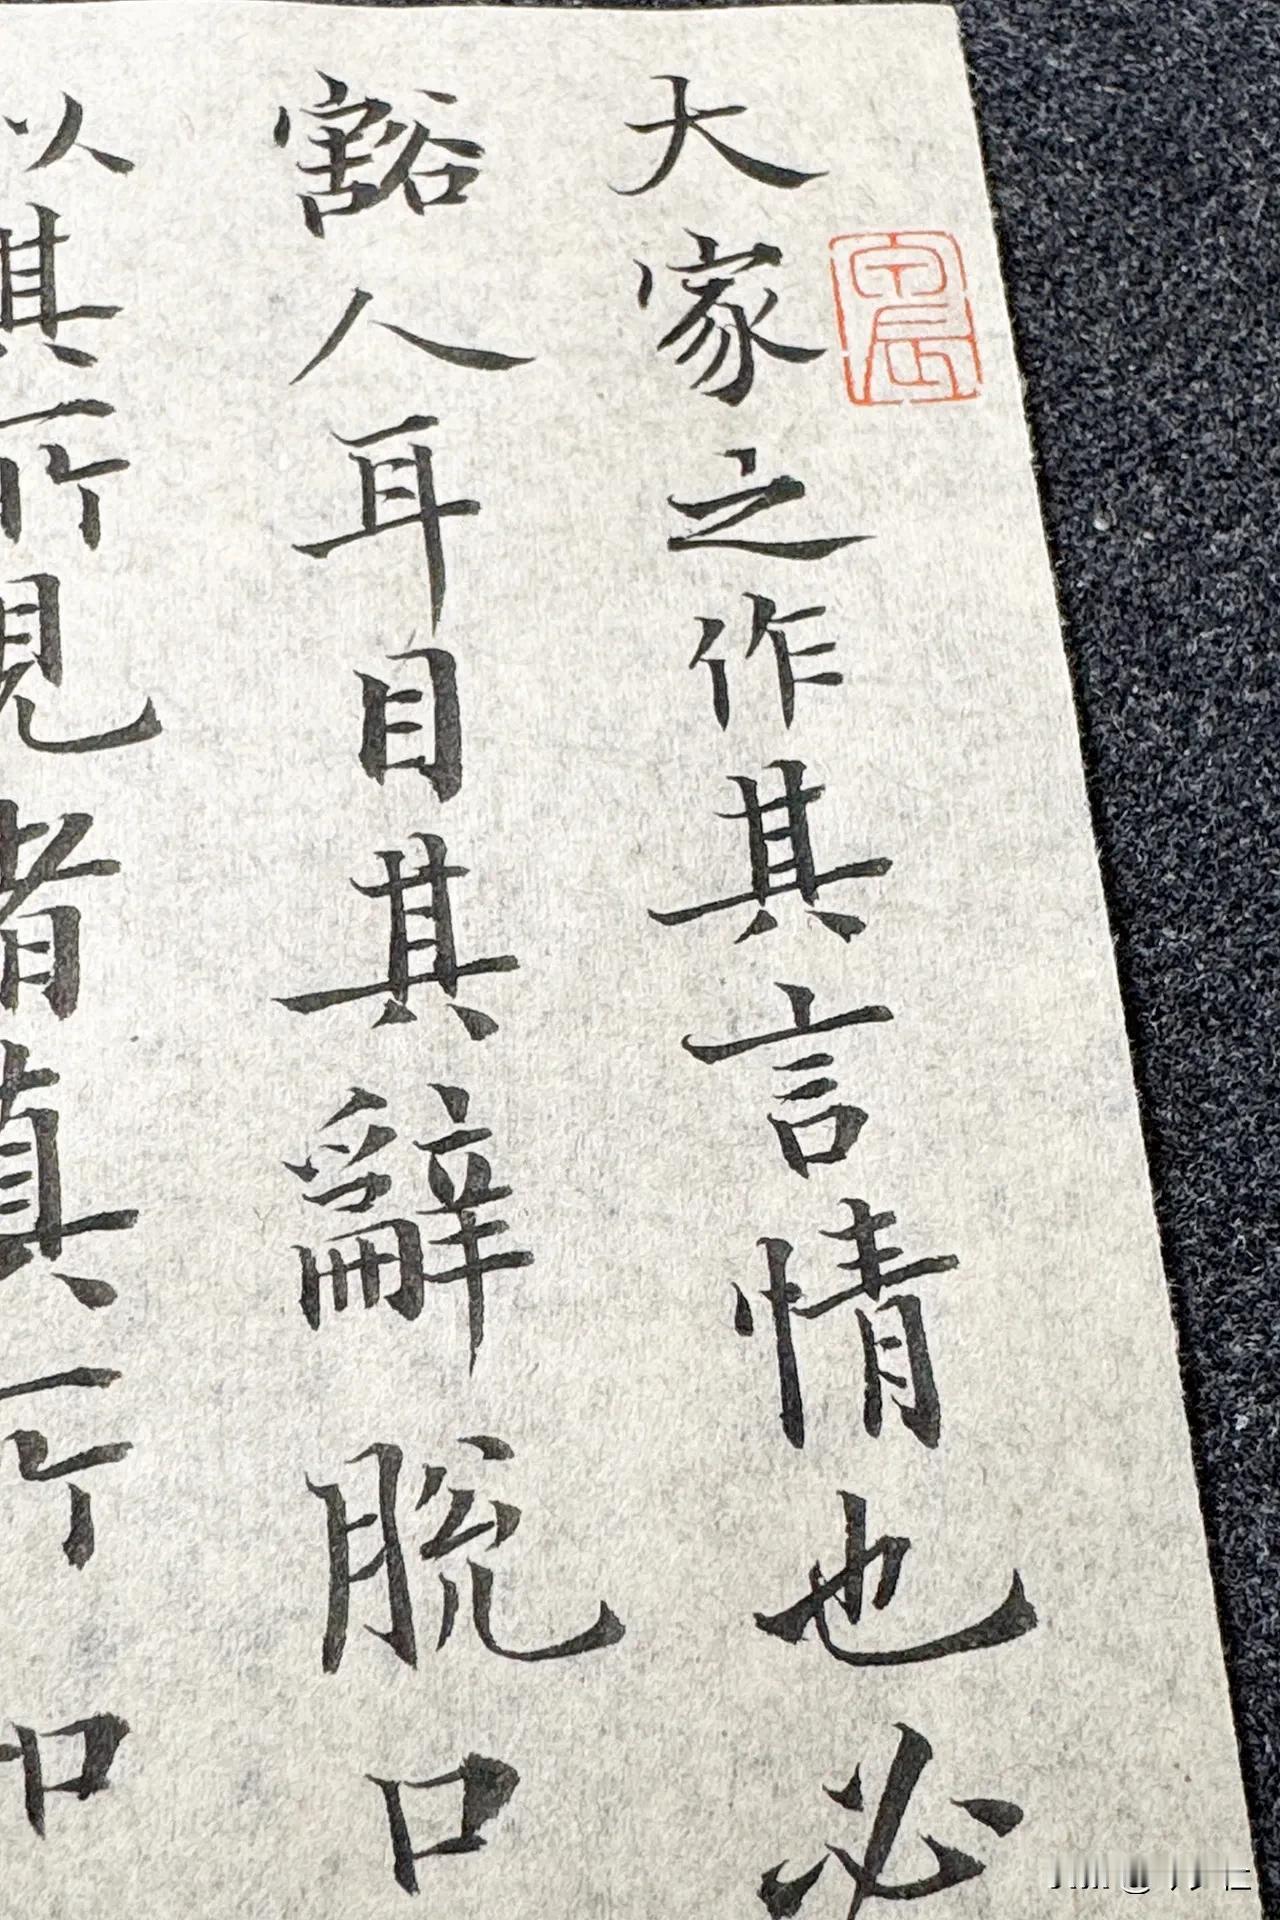 大家之作其言情也必
豁人耳目其辭脫口
以其所見者真所